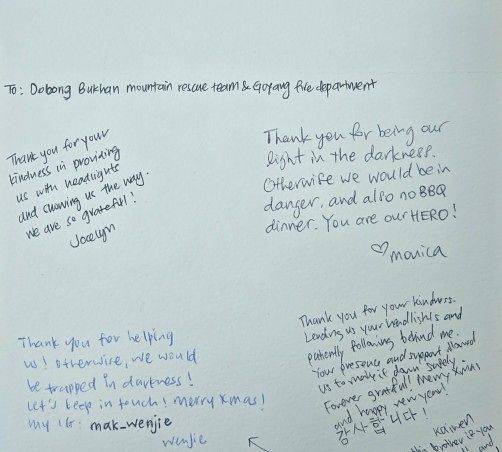 To: Dobong Bukhan mountain rescue team & Goyang fire department
Thank you for your
kindness in providing
us with headlights
and showing us the way.
We are so grateful!
Jocelyn
Thank you for being our
light in the darkness.
Otherwise we would be in
danger, and also no BBQ
dinner. You are our HERO!
♡ monica
Thank you for helping
us! Otherwise, we would
be trapped in darkness!
Let's keep in touch! Merry Xmas!
my IG: mak_wenjie
wenjie
Thank you for your kindness.
Lending us your headlights and
patiently following behind me.
Your presence and support allowed
us to make it down safely.
Forever grateful! Merry Xmas
and happy new year!
감사합니다!
brother if you
and